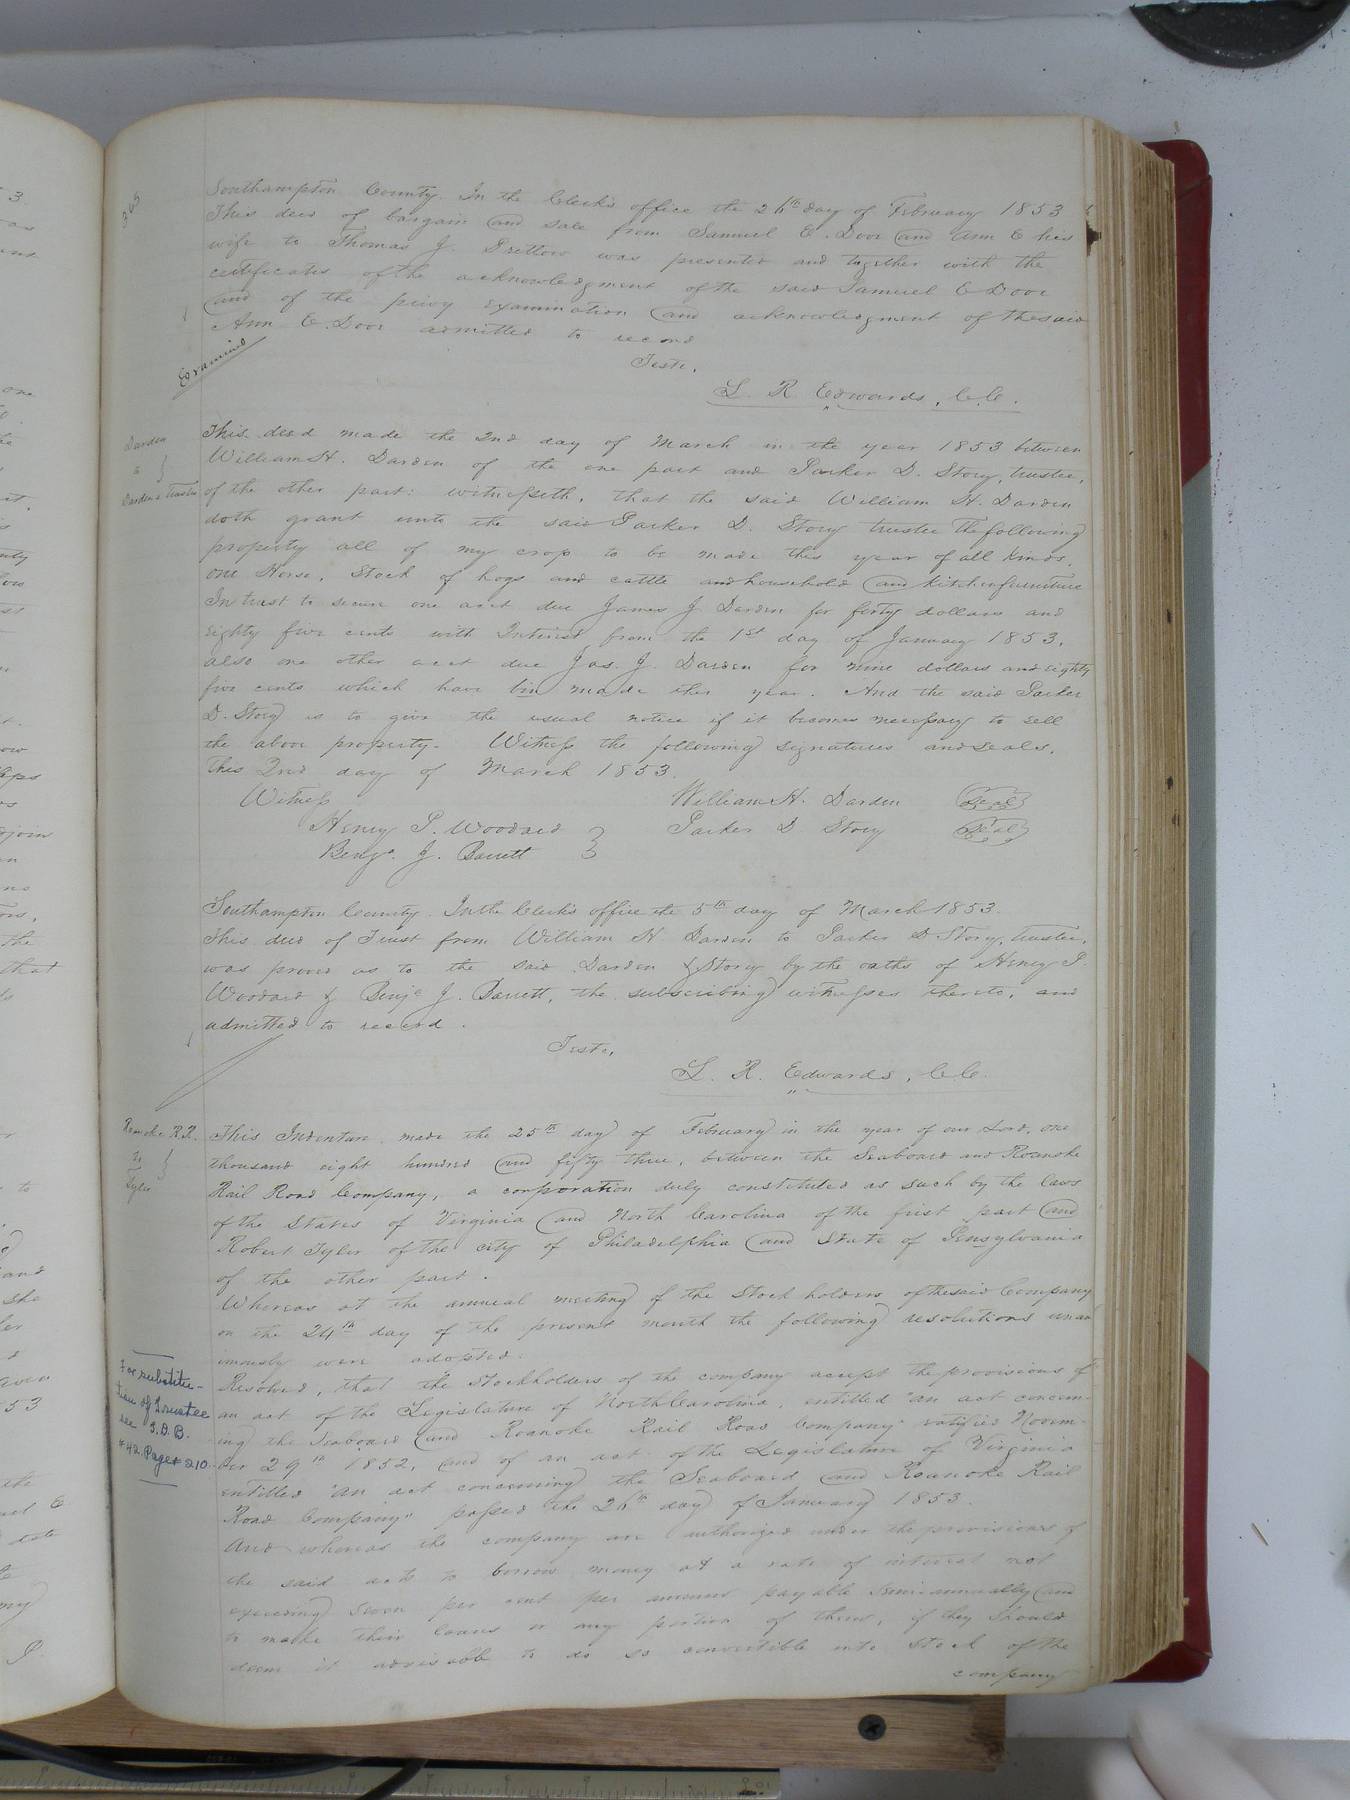 365
Southampton County. In the Clerk's office the 26th day of February 1853
This deed of bargain and sale from Samuel E. Door and Ann E his
wife to Thomas J. Pretlow was presented and together with the
certificates of the acknowledgment of the said Samuel E Door
and of the privy examination and acknowledgment of the said
Ann E. Door admitted to record
Teste,
L. R. Edwards, C.C.
Examined
Darden
to
Darden's Trustee
This deed made the 2nd day of March in the year 1853 between
William H. Darden of the one part and Parker D. Story, trustee,
of the other part: witnesseth, that the said William H. Darden
doth grant unto the said Parker D. Story trustee the following
property all of my crop to be made this year of all kinds.
one Horse, Stock of hogs and cattle and household and kitchen furniture
In trust to secure one acct due James J Darden for forty dollars and
eighty five cents with Interest from the 1st day of January 1853,
also one other acct due Jas. J. Darden for nine dollars and eighty
five cents which have bin made this year. And the said Parker
D. Story is to give the usual notice if it becomes necessary to sell
the above property. Witness the following signatures and seals,
this 2nd day of March 1853.
Witness William H. Darden Seal
Henry P. Woodard Parker D. Story Seal
Benja. J. Barrett
Southampton County. In the Clerk's office the 5th day of March 1853.
This deed of Trust from William H Darden to Parker D Story, trustee,
was proved as to the said Darden & Story by the oaths of Henry P.
Woodard & Benja J. Barrett, the subscribing witnesses thereto, and
admitted to record.
Teste,
L. R. Edwards, C.C.
Roanoke R.R.
To
Tyler
This Indenture, made the 25th day of February in the year of our Lord, one
thousand eight hundred and fifty three, between the Seaboard and Roanoke
Rail Road Company, a corporation duly constituted as such by the laws
of the States of Virginia and North Carolina of the first part and
Robert Tyler of the city of Philadelphia and State of Pensylvania
of the other part.
Whereas at the annual meeting of the Stock holders of the said Company
on the 24th day of the present month the following resolutions unan
imously were adopted.
Resolved, that the Stockholders of the company accept the provisions of
an act of the Legislature of North Carolina, entitled "an act concern-
ing the Seaboard and Roanoke Rail Road Company" ratified Novem-
ber 29th 1852, and of an act of the Legislature of Virginia
entitled "an act concerning the Seaboard and Roanoke Rail
Road Company" passed the 26th day of January 1853.
And whereas the company are authorized under the provisions of
the said acts to borrow money at a rate of interest not
exceeding seven per cent per annum payable Semi-annually and
to make their loans or any portion of them, if they should
deem it advisable to do so convertible into stock of the
company
For substitu-
tion of Trustee
see D.B.
#42 Page 210